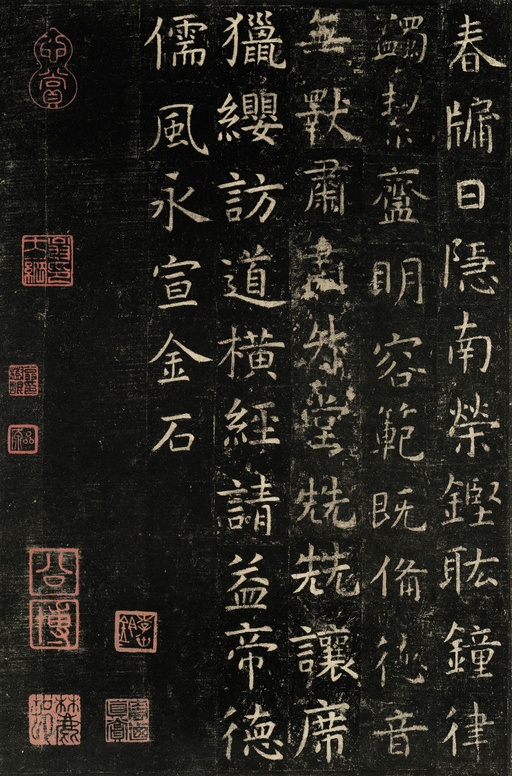 春牖日隱南榮鏗耾鐘律
蠲絜齍明容範既備德音
無斁肅肅升堂兟兟讓席
獵纓訪道橫經請益帝德
儒風永宣金石
公博